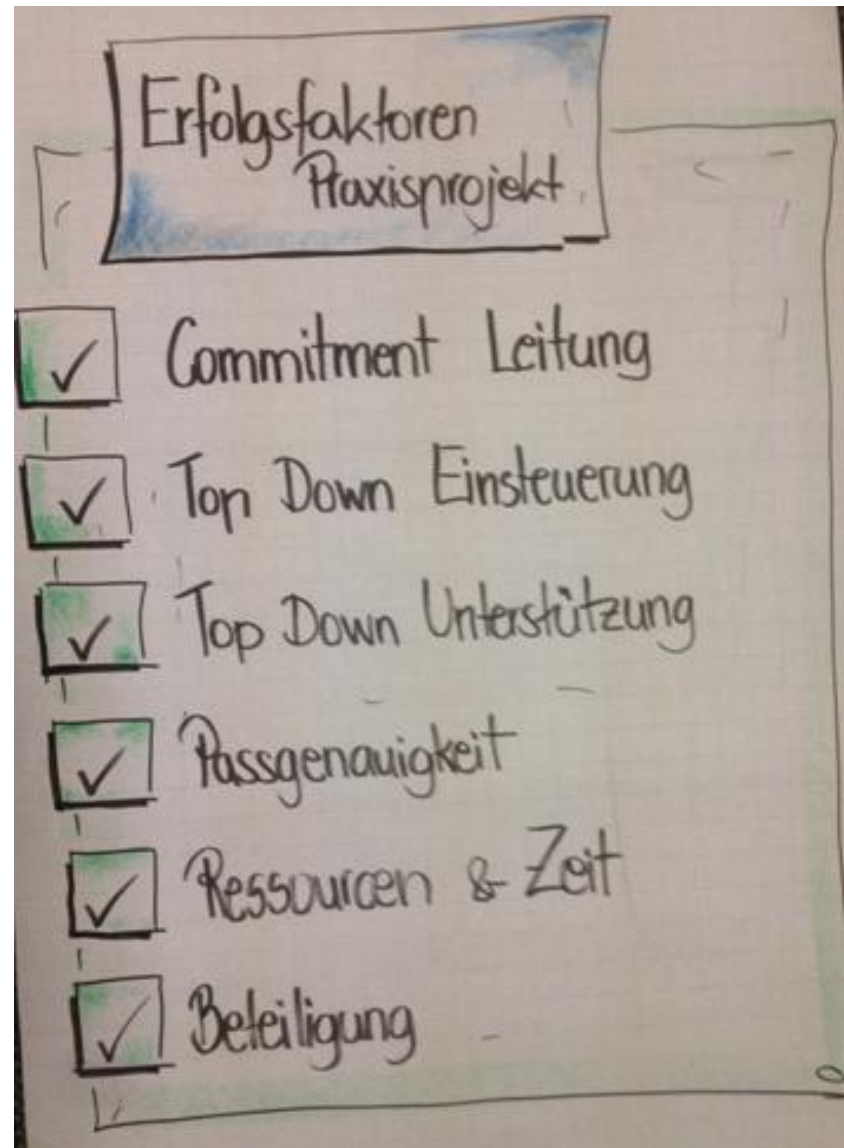 Erfolgsfaktoren
Praxisprojekt
Commitment Leitung
Top Down Einsteuerung
Top Down Unterstützung
Passgenauigkeit
Ressourcen & Zeit
Beteiligung